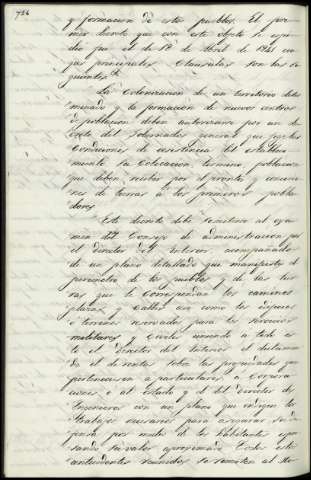 724
y formacion de estos pueblos. El pri-
mer decreto que con este objeto se espi-
dió fue el de 18 de Abril de 1841 cu-
yas principales Clausulas son las si-
guientes
La Colonizacion de un territorio deter-
minado y la formacion de nuevos centros
de poblacion deben autorizarse por un de-
creto del Gobernador general que fije las
Condiciones de existencia del estableci-
miento la Colocacion, termino, poblacion
que deben recibir por el pronto y concesio-
nes de tierras á los primeros pobla-
dores.
Este decreto debe remitirse al exa-
men del Consejo de administracion por
el director del Interior acompañandole
de un plano detallado que manifieste el
perimetro de los pueblos y de las tier-
ras que le Correspondan los caminos
plazas y Calles asi como los espacios
ó terrenos reservados para los servicios
militares y Civiles uniendo á todo es-
to el director del Interior el dictamen
del de rentas sobre las propiedades que
pertenezcan á particulares á Corpora-
ciones ó al estado y el del director de
Ingenieros con un plano que indique los
trabajos necesarios para asegurar la de-
fensa por medio de los habitantes
su valor aproximado. Todos estos
antecedentes reunidos se remiten al